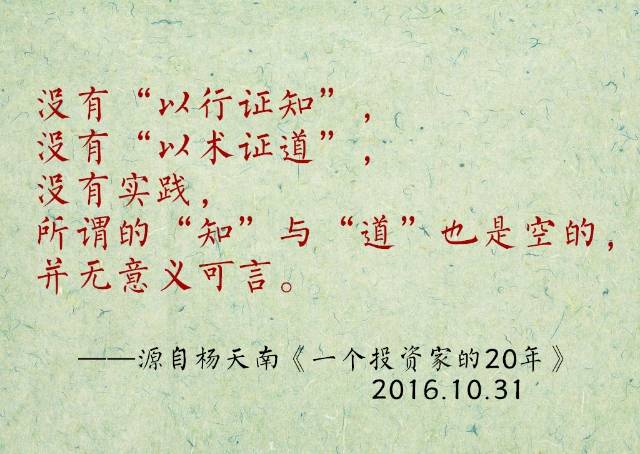 没有“以行证知”，
没有“以术证道”，
没有实践，
所谓的“知”与“道”也是空的，
并无意义可言。
——源自杨天南《一个投资家的20年》
2016.10.31